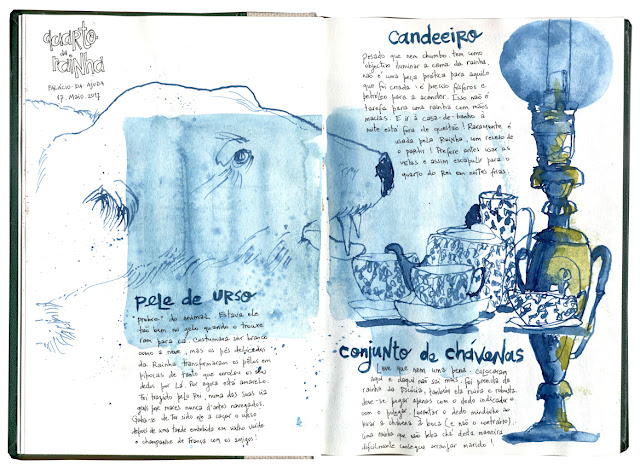 quarto
da
rainha
PALÁCIO DA AJUDA
17. MAIO. 2017
pele de urso
"pobre" do animal. Estava ele
tão bem no gelo quando o trouxe
ram para cá. Costumava ser branco
como a neve, mas os pés delicados
da Rainha transformaram os pêlos em
pipocas de tanto que enrolou os
dedos por lá. Por agora está amarelo.
Foi trazido pelo Rei, numa das suas via
gens por mares nunca d'antes navegados.
de ter sido ele a caçar o urso
depois de uma tarde embebida em vinho
e champanhe de França com os amigos!
candeeiro
Pesado que nem chumbo, tem um
objectivo iluminar a cama da rainha,
não é uma peça prática para aquilo
que foi criada: é preciso fósforos e
petróleo para a acender. Isso não é
tarefa para uma rainha com mãos
macias. E ir à casa-de-banho à
noite está fora de questão! Raramente é
usada pela Rainha, com receio de
o partir! Prefere antes usar as
velas e assim escapulir para o
quarto do Rei em noites frias.
conjunto de chávenas
Leve que nem uma pena, colocaram
aqui e daqui não sai mais. Foi prenda da
rainha da também ela ruiva e robusta.
Deve-se pegar apenas com o dedo indicador e
com o polegar, levantar o dedo mindinho ao
levar a chávena à boca (e não o contrário).
Uma rainha que não beba chá desta maneira
dificilmente consegue arranjar marido!